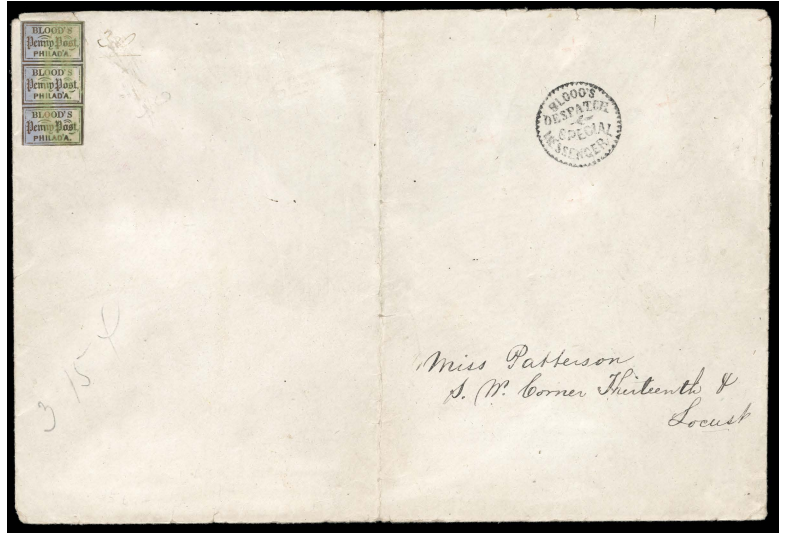 BLOOD'S
Penny Post.
PHILAD'A.
BLOOD'S
Penny Post.
PHILAD'A.
BLOOD'S
Penny Post.
PHILAD'A.
BLOOD'S
DESPATCH
SPECIAL
MESSENGER
Miss Patterson
S. W. Corner Thirteenth &
Locust
3 15